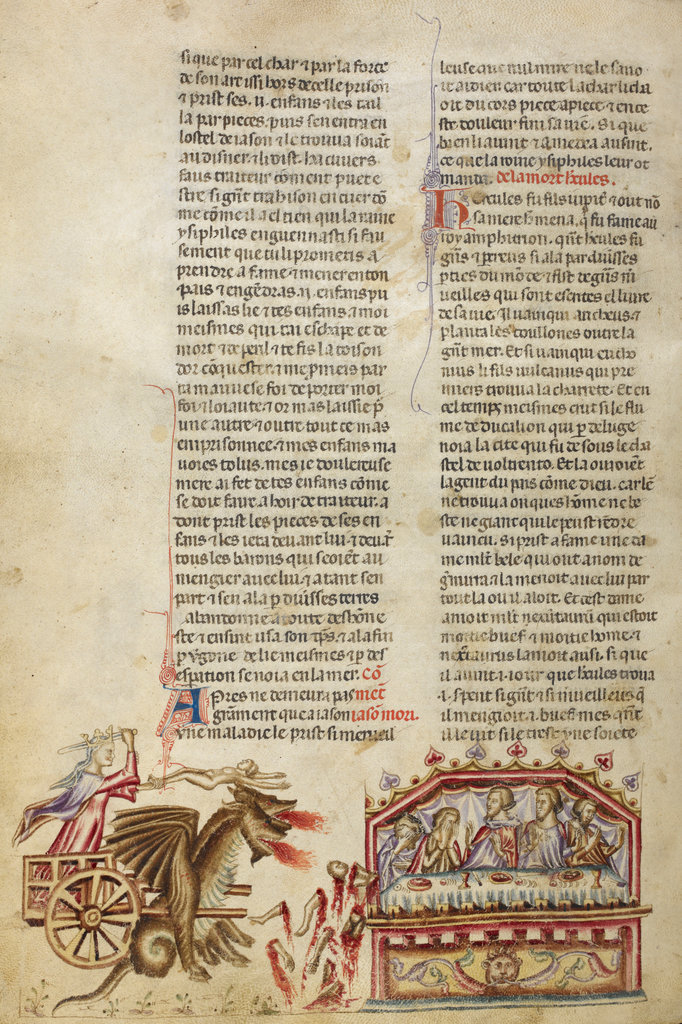 si que par cel char ⁊ par la force
de son art issi hors de celle prison
⁊ prist ses .ii. enfans ⁊ les tail
la par pieces. puis sen entra en
lostel de iason ⁊ le trouva seiant
au disner. ⁊ li dist. ha cuivers
faus traiteur coment puet e
stre si grant traison en cuer co
me come il a el tien qui la raine
ysiphiles engueunasti si fau
sement que tu li prometis a
prendre a fame ⁊ mener en ton
pais ⁊ engendras .ii. enfans pu
is laissas lie ⁊ tes enfans ⁊ moi
meismes qui tai eschape et de
mort ⁊ de peril ⁊ te fis la toison
dor conquester. ⁊ me promeis par
ta mauvese foi de porter moi
foi ⁊ loiaute. ⁊ or mas laissie p
une autre ⁊ outre tout ce mas
emprisonnee. ⁊ mes enfans ma
voies tolus. mes ie doulereuse
mere ai fet de tes enfans come
se doit faire a hoir de traiteur. a
dont prist les pieces de ses en
fans ⁊ les ieta devant lui ⁊ devt
tous les barons qui seoient au
mengier avec lui. ⁊ a tant sen
part ⁊ sen ala p divisses terres
abandonnee a toute deshone
ste ⁊ ensint usa son tps. ⁊ a la fin
p vgone de lie meismes ⁊ p des
espation se noia en la mer. Co
Apres ne demeura pas met
grament que a iason iason mori.
vne maladie le prist si merveil
leuse que nul mire ne le savo
it aidier. car toute la char li cha
oit du cors piece a piece ⁊ en ce
ste douleur fini sa vie. Si que
bien li avint ⁊ a medea ausint.
ce que la roine ysiphiles leur ot
manda. de la mort hercules.
Hercules fu fils iupit ⁊ out no
sa mere hmena. q fu fame au
roy amphitrion. qnt hcules fu
gns ⁊ preus si ala par divisses
pties du monde ⁊ fist de gns m
veilles qui sont escrites el livre
de sa vie. Il vainqui antheus ⁊
planta les coullones outre la
gnt mer. Et si vainqui encho
nius li fils vulcanus qui pre
miers trouva la charrete. Et en
cel temps meismes crut si le flu
me de ducalion qui p deluge
noia la cite qui fu de sous le cha
stel de voltrento. Et la ouroient
la gent du pais come dieu. car len
ne trouva onques home ne be
ste ne giant qui le peust rendre
vaincu. Si prist a fame une da
me mlt bele qui out a nom de
gmura ⁊ la menoit avec lui par
tout la ou il aloit. Et ceste dame
amoit mlt nexcitaurn qui estoit
moitie buef ⁊ moitie home. ⁊
nexcaurus lamoit ausi. Si que
il avint .i. iour que hcules trova
.i. spent si grant ⁊ si mveilleus q
il mengioit .i. buef. mes qnt
il le vit si le